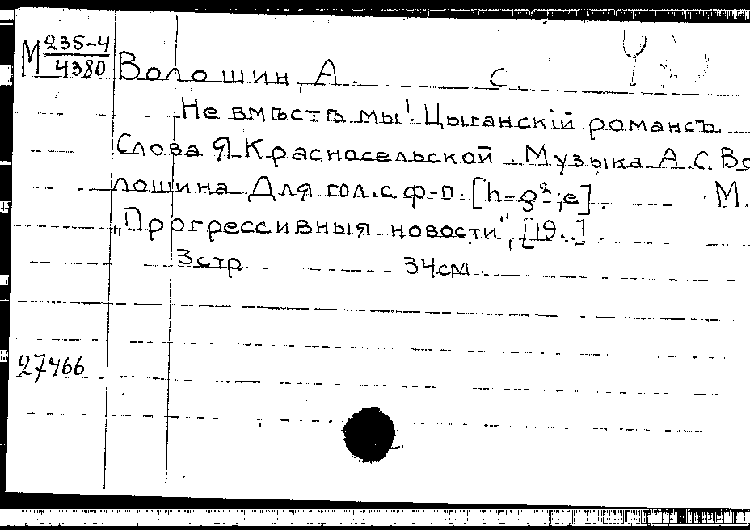 М 235-4
4380
Волошин, А. С.
Не вмѣстѣ мы! Цыганскій романсъ
Слова Я. Красносельской. Музыка А. С. Во
лошина. Для гол. с ф-п. [h-g²; e]. М.
„Прогрессивныя новости", [19..]
3 стр 34 см
27466